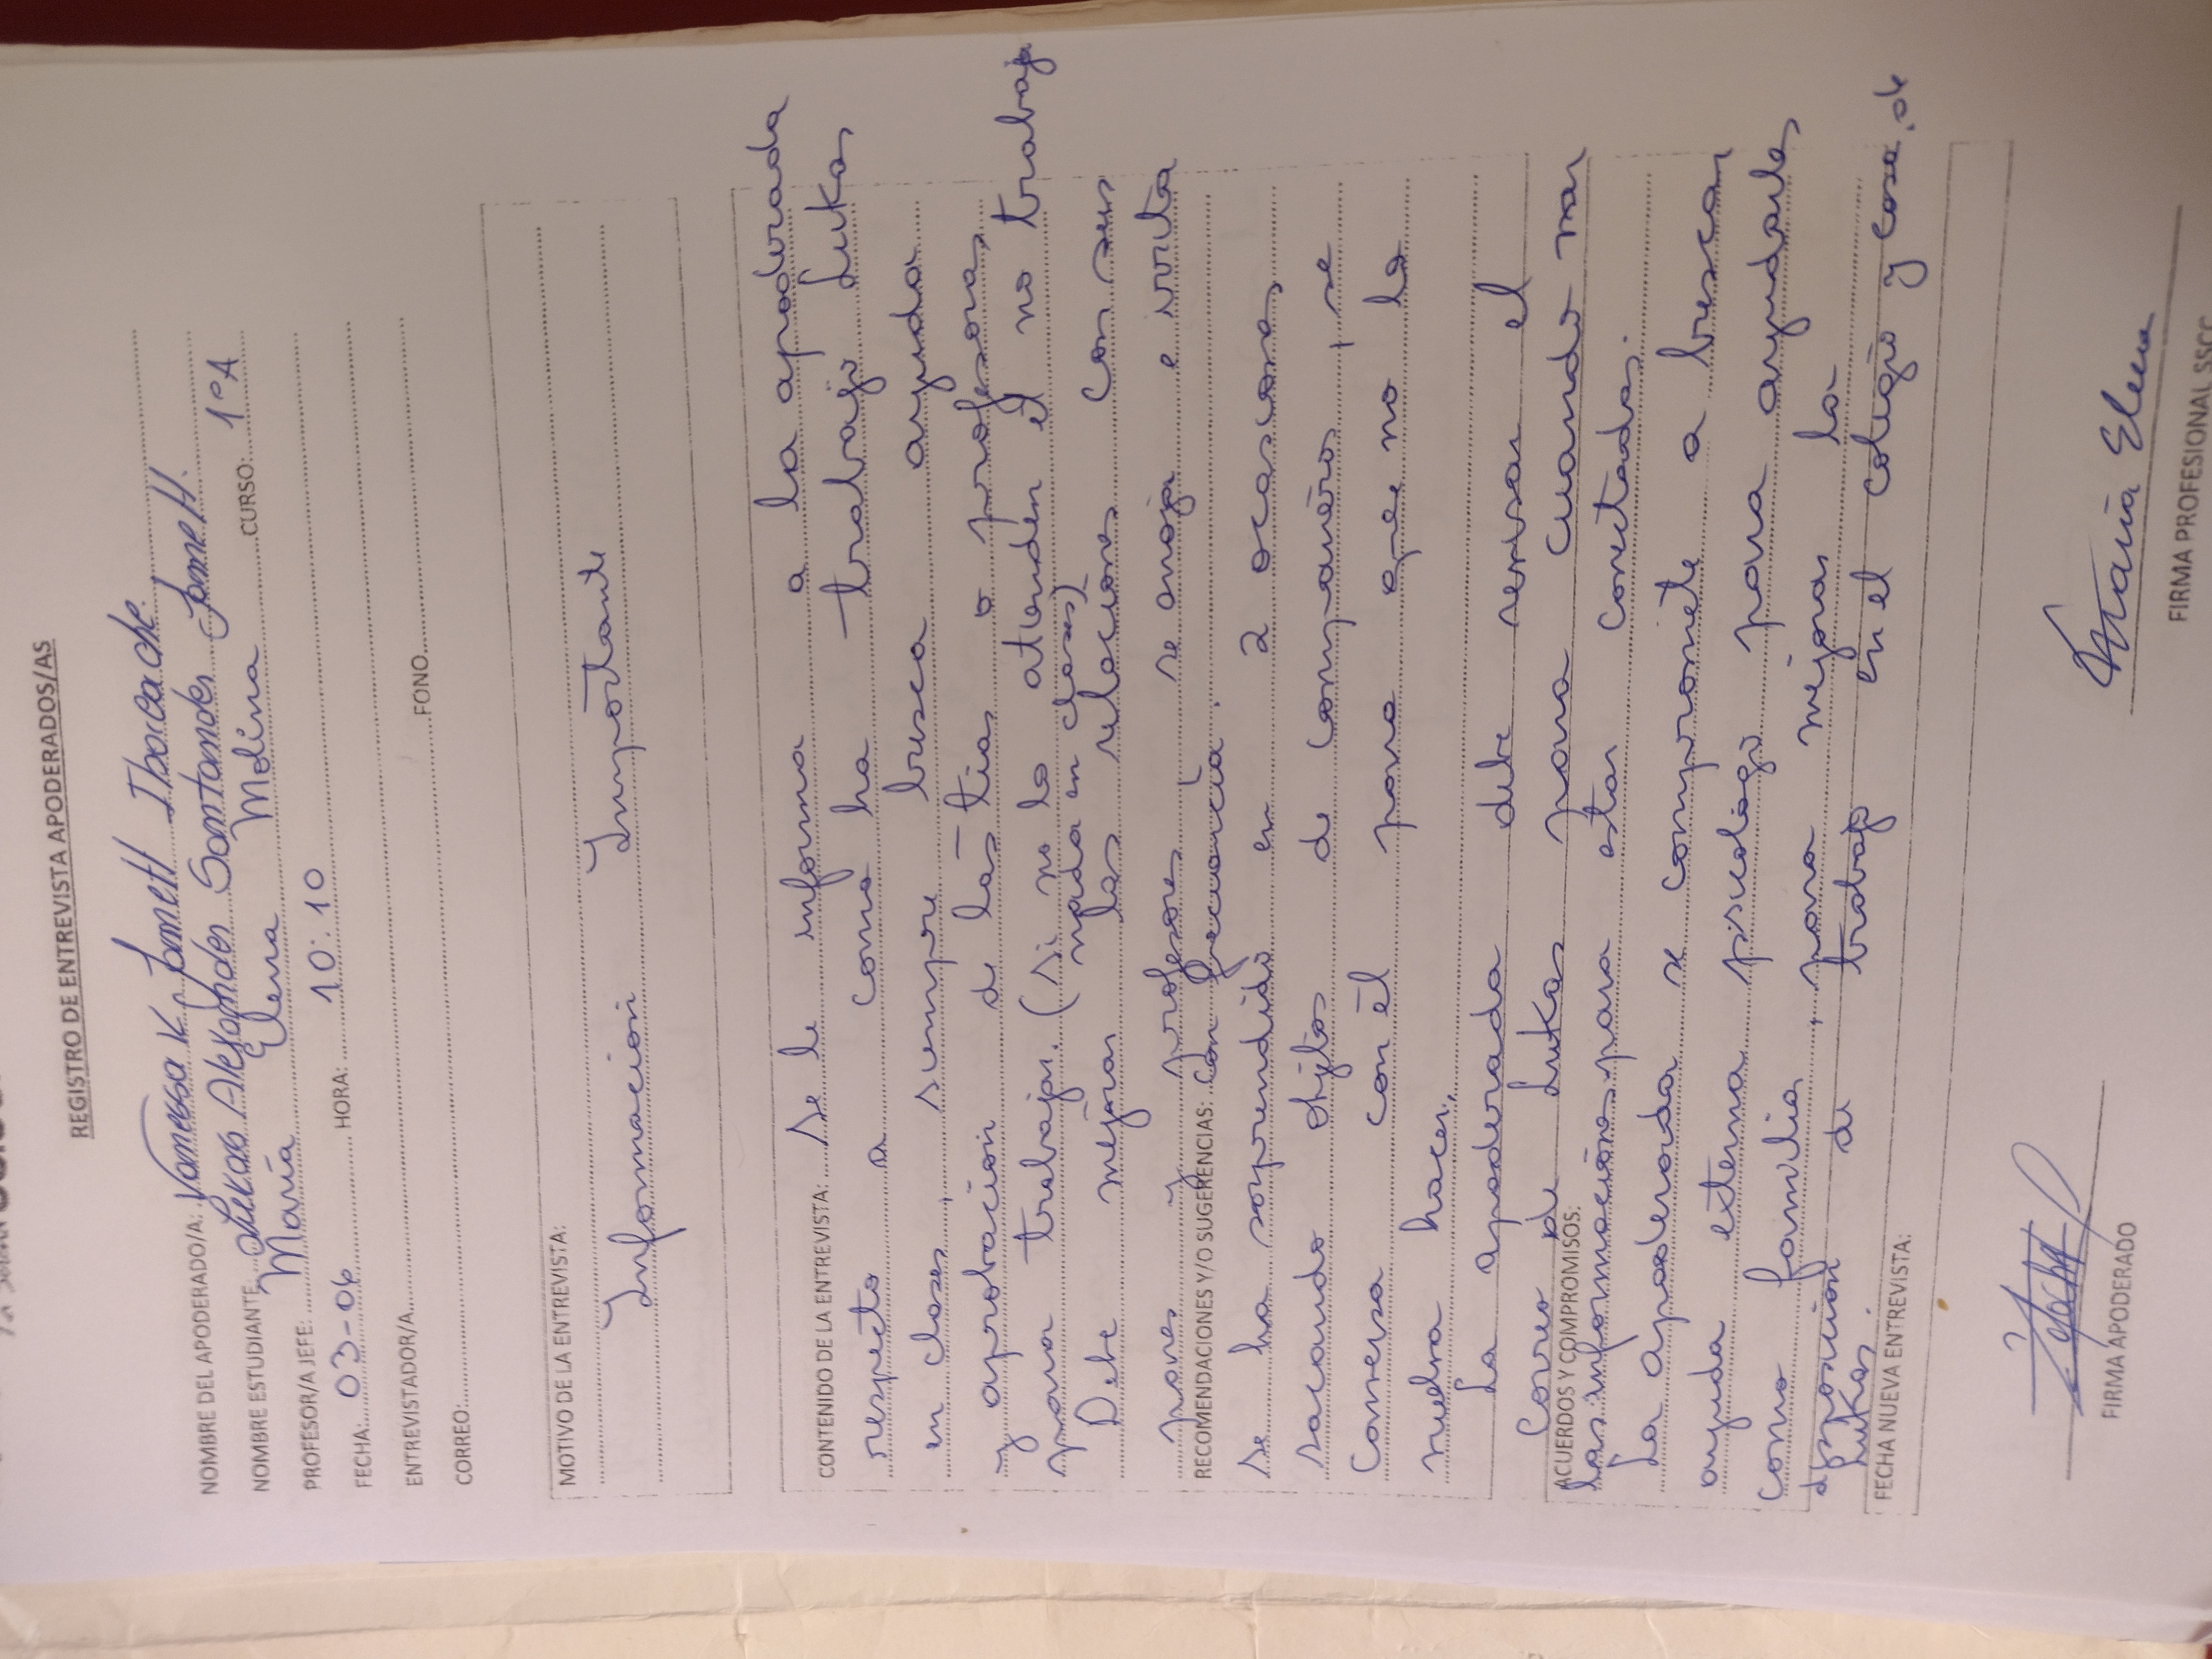 REGISTRO DE ENTREVISTA APODERADOS/AS
NOMBRE DEL APODERADO/A: Vanessa K. Jamett Ibarcache
NOMBRE ESTUDIANTE: Lukas Alexander Santander Jamett.
PROFESOR/A JEFE: María Elena Molina CURSO: 1°A
FECHA: 03-06 HORA: 10:10
ENTREVISTADOR/A
CORREO: FONO
MOTIVO DE LA ENTREVISTA:
Información Importante
CONTENIDO DE LA ENTREVISTA: Se le informa a la apoderada
respecto a como ha trabajo Lukas
en clases, siempre busca ayudar
y aprobación de las tías o profesora,
para trabajar. (Si no lo atienden él no trabaja
nada en clases)
Debe mejorar las relaciones con sus
pares y profesores, se enoja e irrita
RECOMENDACIONES Y/O SUGERENCIAS: con frecuencia.
Se ha sorprendido en 2 ocasiones,
sacando objetos de compañeros, se
conversa con él para que no lo
vuelva hacer.
La apoderada debe revisar el
Correo de Lukas para cuando mar
ACUERDOS Y COMPROMISOS:
las informaciones para estar conectados.
La apoderada se compromete a buscar
ayuda externa psicólogo para ayudarles
como familia, para mejorar la
disposición de trabajo en el colegio y casa, de
Lukas.
FECHA NUEVA ENTREVISTA:
María Elena
FIRMA APODERADO
FIRMA PROFESIONAL SSCC